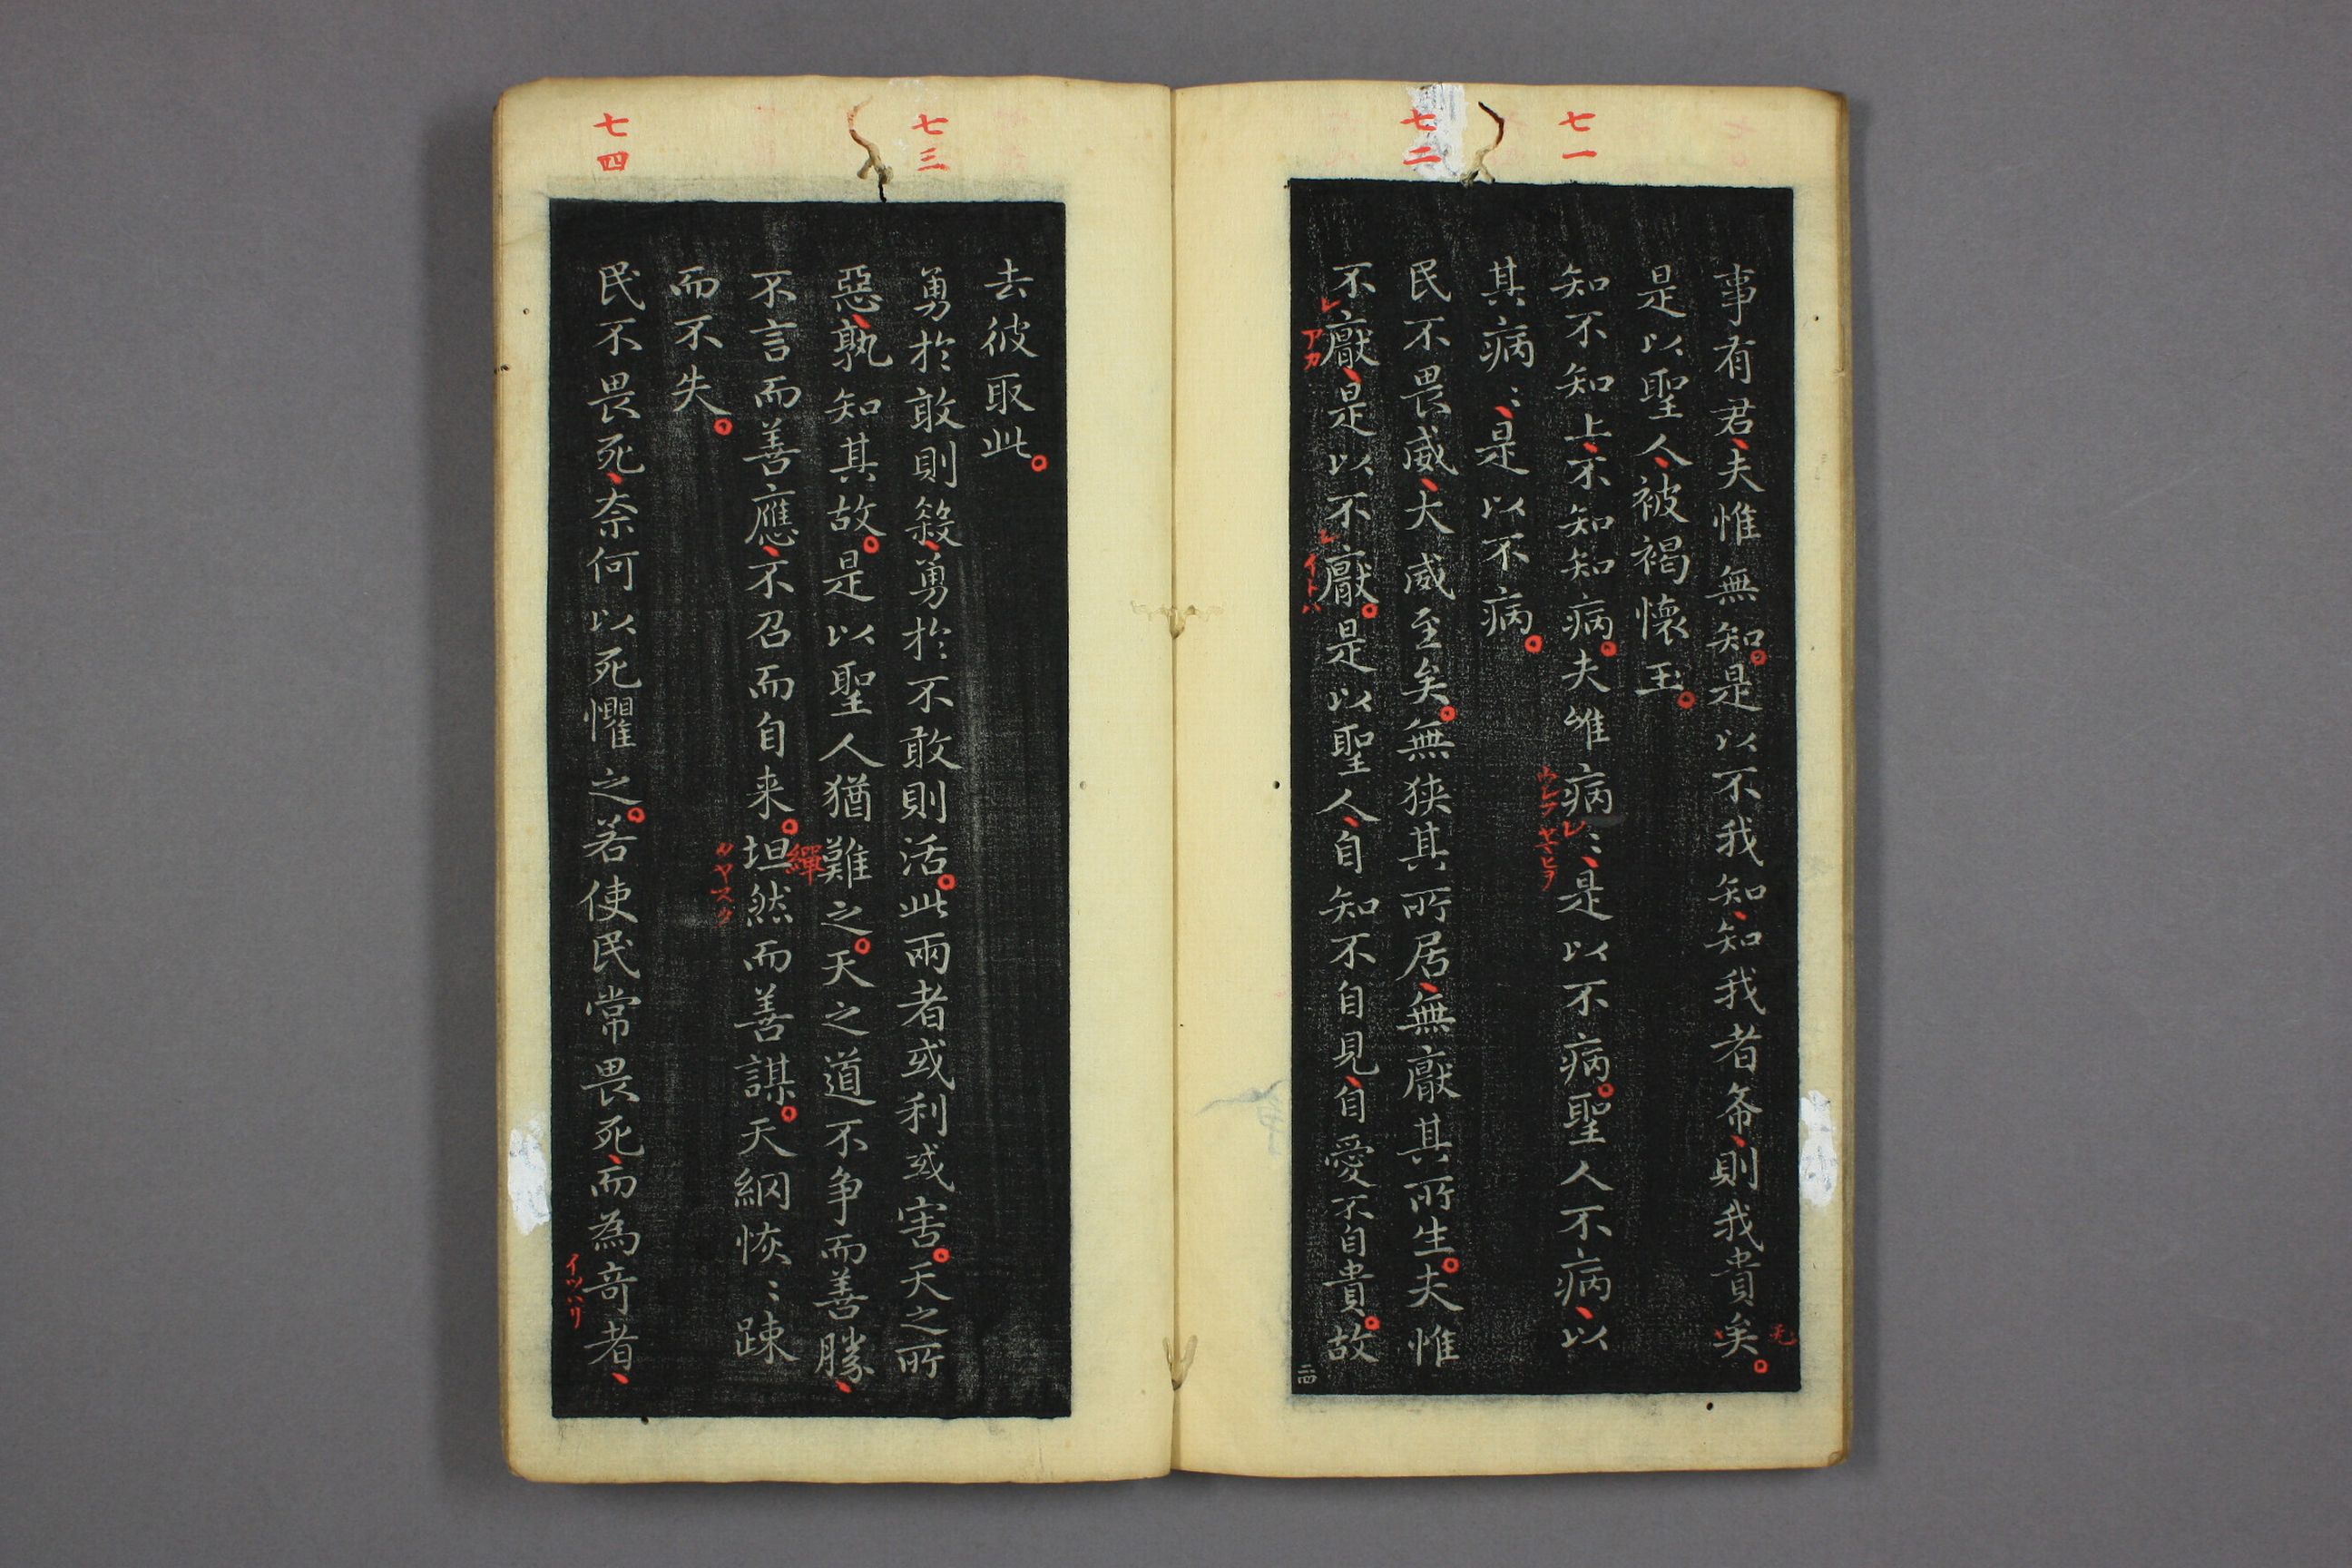 七一
七二
事有君、夫惟無知。是以不我知、知我者希、則我貴矣。
无
是以聖人、被褐懷玉。
知不知上、不知知病。夫唯病〻、是以不病。聖人不病、以
レ
其病〻、是以不病。
民不畏威、大威至矣。無狹其所居、無厭其所生。夫惟
不厭、是以不厭。是以聖人、自知不自見、自愛不自貴。故
レ
アカ
レ
イトハ
二四
七三
七四
去彼取此。
勇於敢則煞、勇於不敢則活。此兩者或利或害。天之所
惡、孰知其故。是以聖人猶難之。天之道不爭而善勝、
不言而善應、不召而自来。坦然而善謀。天網恢〻踈
繟
而不失。
民不畏死、奈何以死懼之。若使民常畏死、而為奇者、
イツハリ